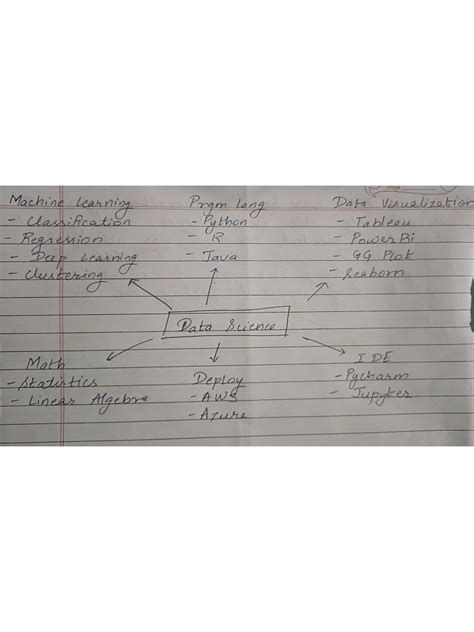 Machine Learning
- Classification
- Regression
- Deep Learning
- Clustering
Prgm Lang
- Python
- R
- Java
Data Visualization
- Tableau
- Power Bi
- GG Plot
- Seaborn
Data Science
Math
- Statistics
- Linear Algebra
Deploy
- AWS
- Azure
IDE
- Pycharm
- Jupyter